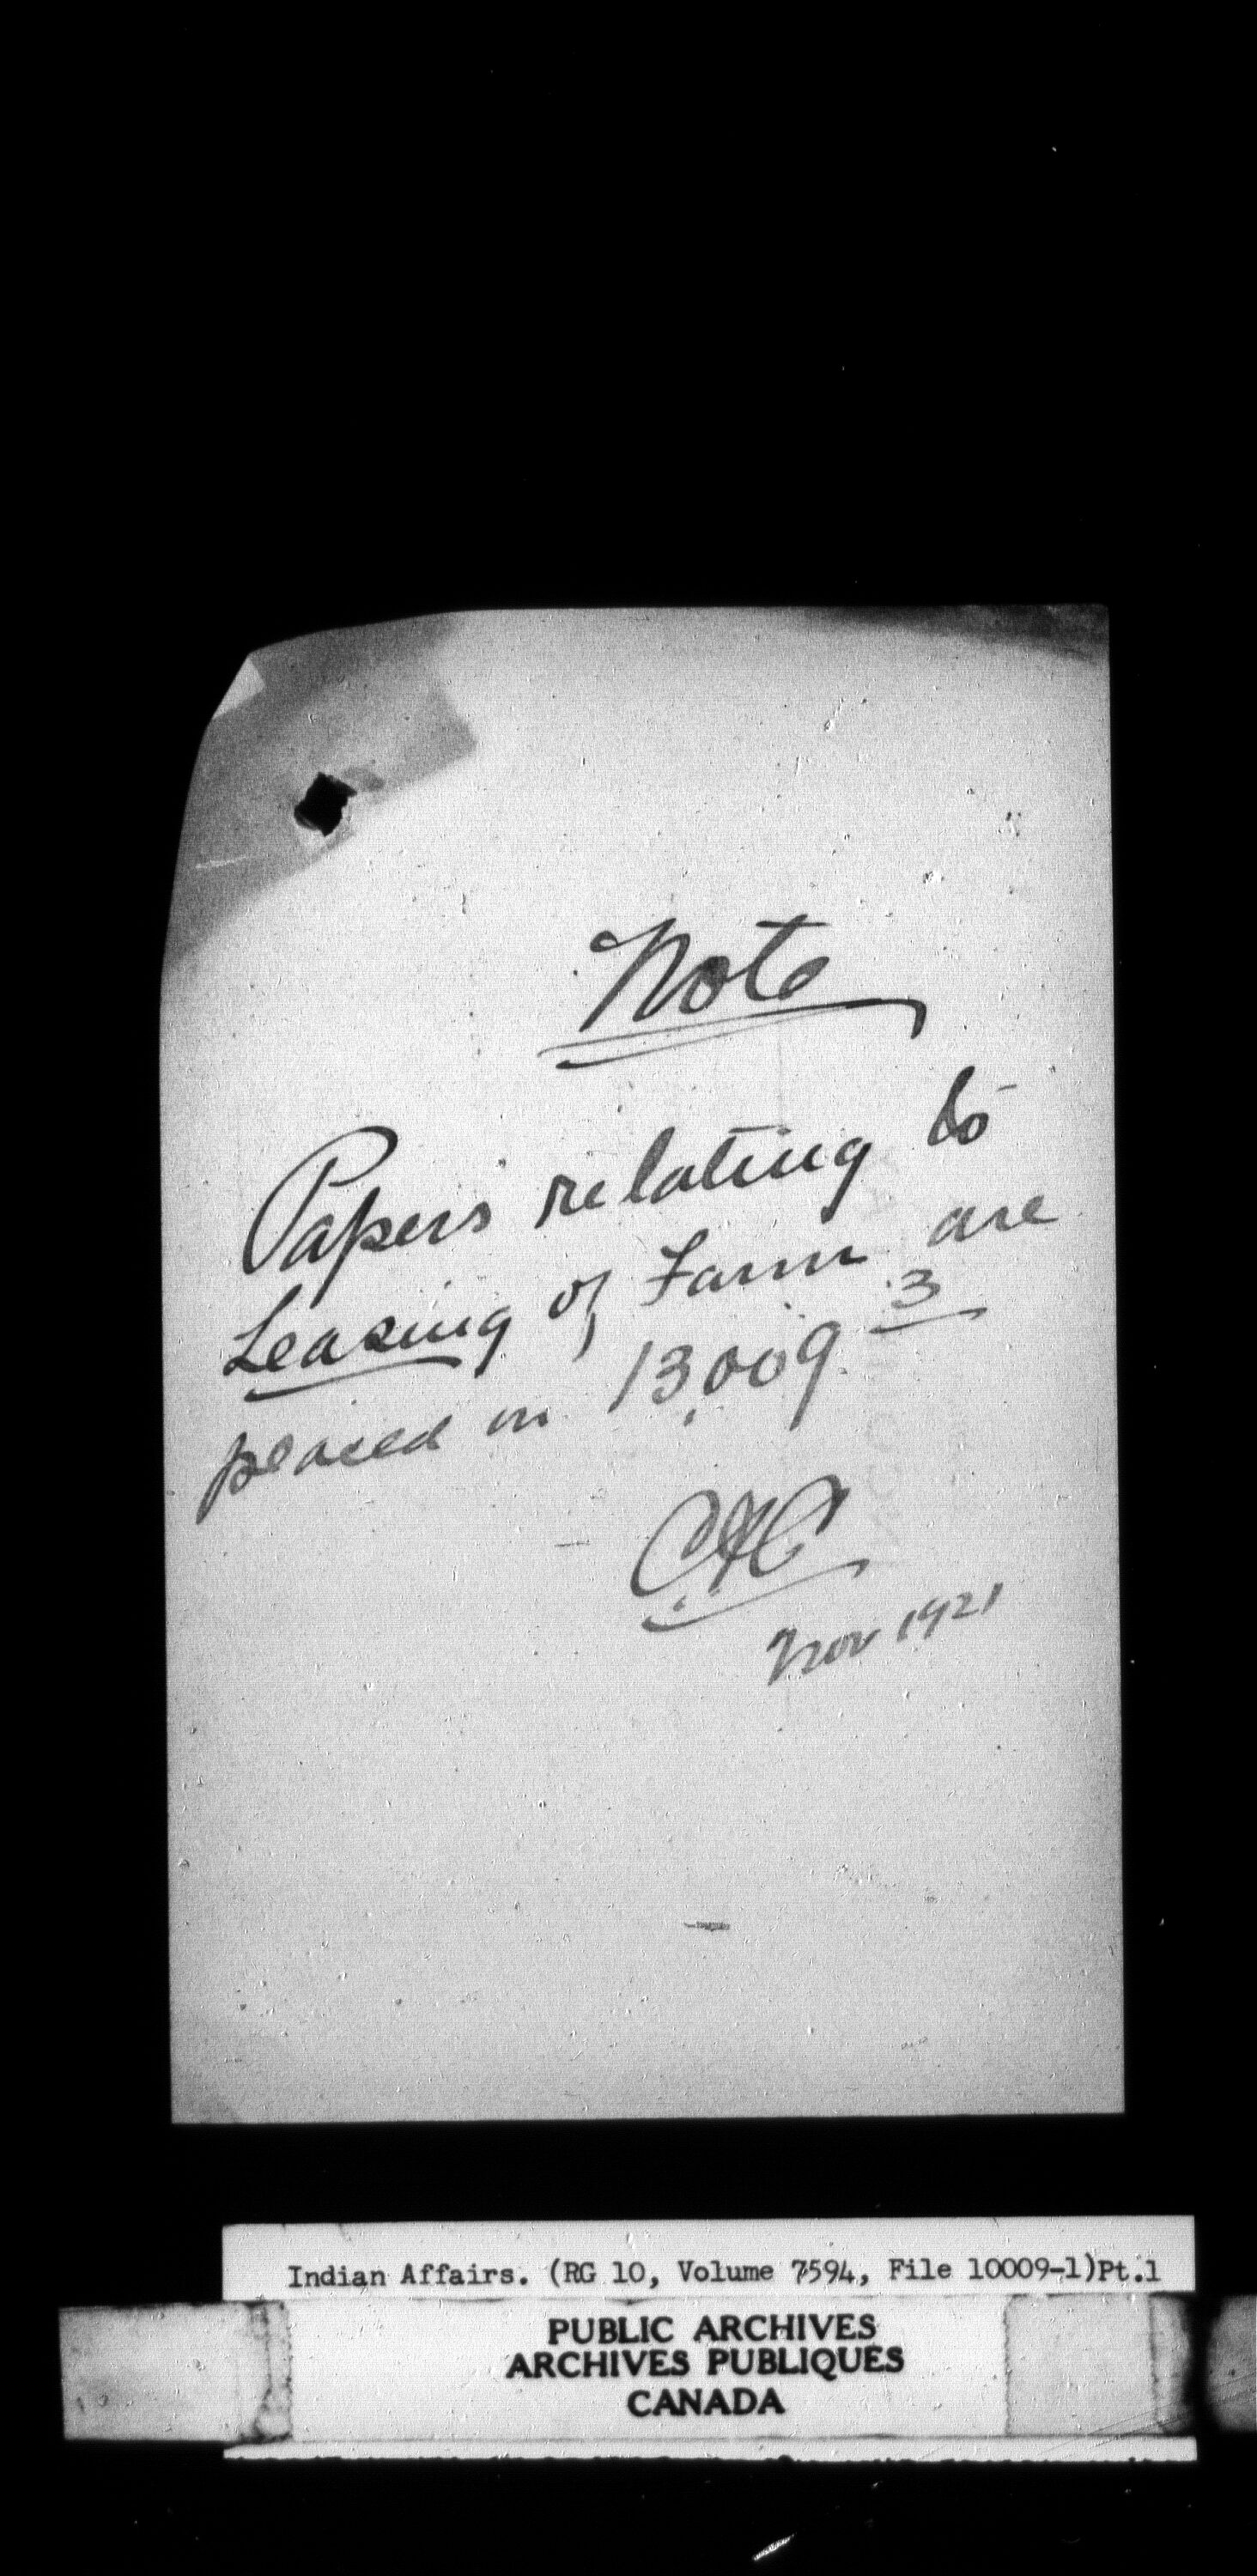 Note
Papers relating to
Leasing of Farm are
placed on 13,009 3
CAC
Nov 1921
Indian Affairs. (RG 10, Volume 7594, File 10009-1)Pt.1
PUBLIC ARCHIVES
ARCHIVES PUBLIQUES
CANADA